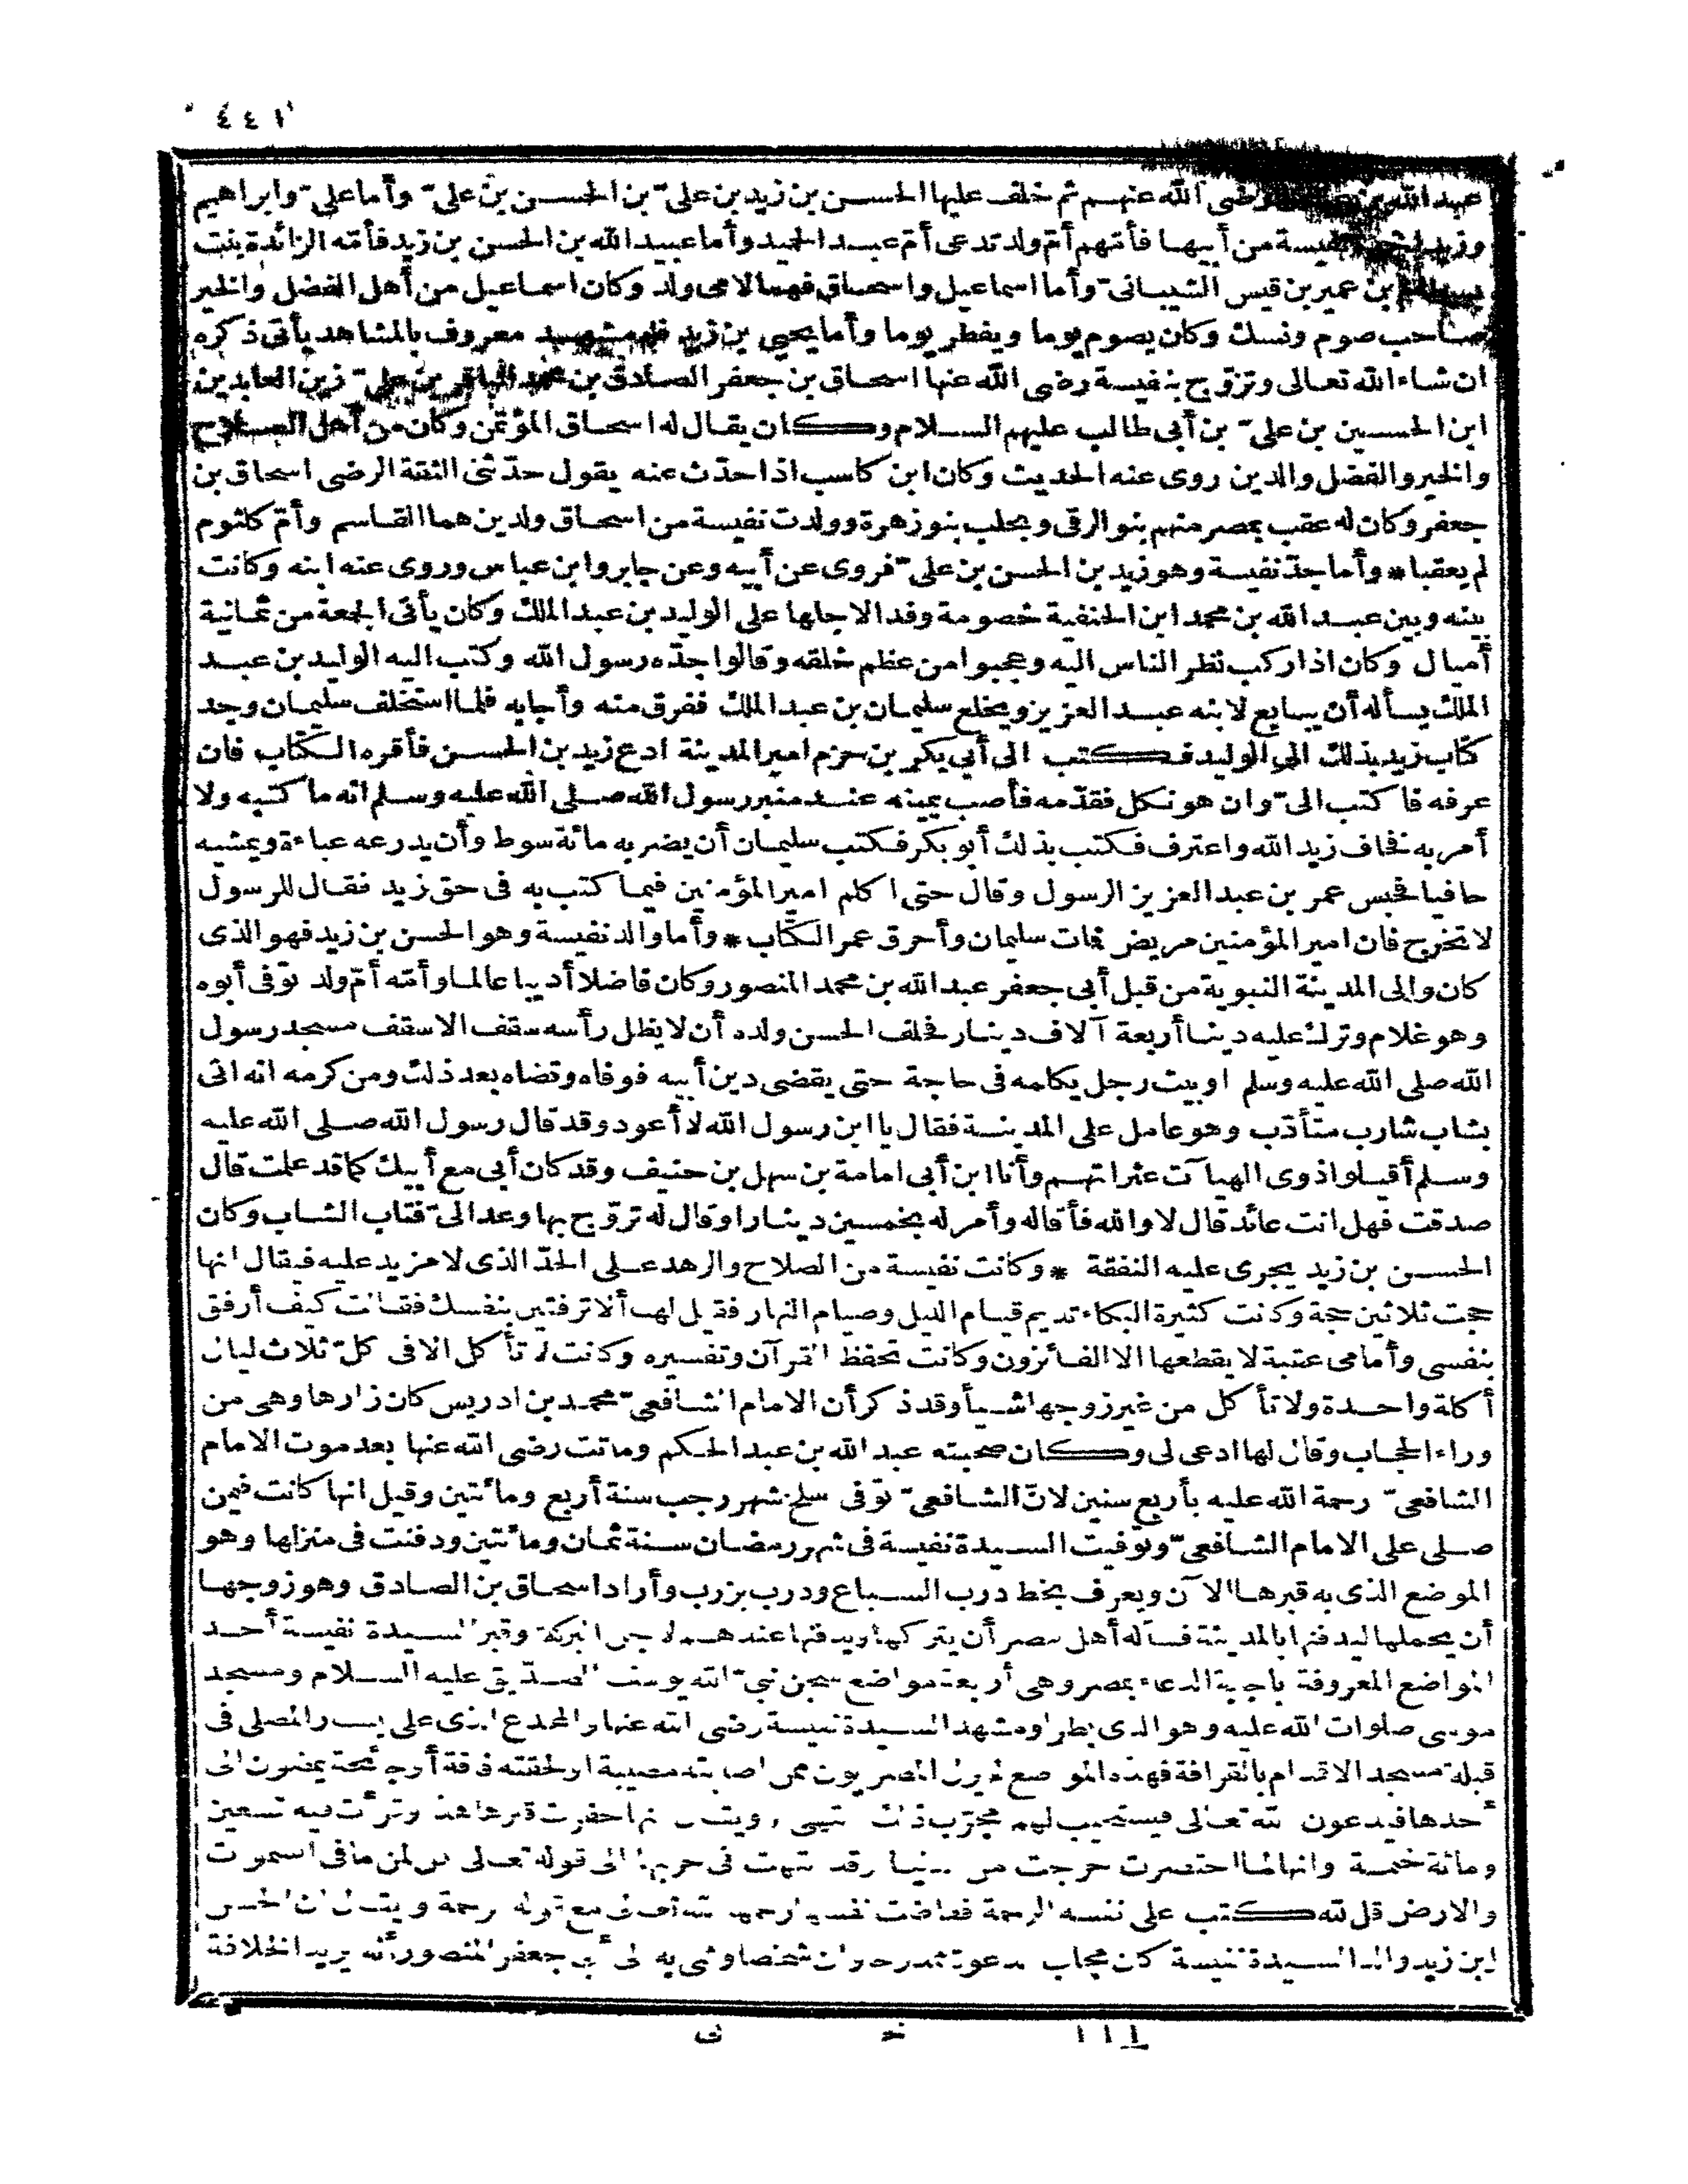 ٤٤١
عبد الله بن رضى الله عنهم ثم خلف عليها الحسن بن زيد بن على بن الحسن بن على وأما على وابراهيم
وزيد نفيسة من أبيها فأمّهم أمّ ولد تدعى أمّ عبد الحميد وأما عبيد الله بن الحسن بن زيد فأمّه الزائدة بنت
بن عمير بن قيس الشيبانى وأما اسماعيل واسحاق فهما لامى ولد وكان اسماعيل من أهل الفضل والخير
صاحب صوم ونسك وكان يصوم يوما ويفطر يوما وأما يحيى بن زيد فله مشهد معروف بالمشاهد يأتى ذكره
ان شاء الله تعالى وتزوّج بنفيسة رضى الله عنها اسحاق بن جعفر الصادق بن محمد الباقر بن على زين العابدين
ابن الحسين بن على بن أبى طالب عليهم السلام وكان يقال له اسحاق المؤتمن وكان من أهل الصلاح
والخير والفضل والدين روى عنه الحديث وكان ابن كاسب اذا حدّث عنه يقول حدّثنى الثقة الرضى اسحاق بن
جعفر وكان له عقب بمصر منهم بنو الرقى وبحلب بنو زهرة وولدت نفيسة من اسحاق ولدين هما القاسم وأمّ كلثوم
لم يعقبا * وأما جدّ نفيسة وهو زيد بن الحسن بن على فروى عن أبيه وعن جابر وابن عباس وروى عنه ابنه وكانت
بينه وبين عبد الله بن محمد ابن الحنفية خصومة وفدا لاجلها على الوليد بن عبد الملك وكان يأتى الجمعة من ثمانية
أميال وكان اذا ركب نظر الناس اليه وعجبوا من عظم خلقه وقالوا جدّه رسول الله وكتب اليه الوليد بن عبد
الملك يسأله أن يبايع لابنه عبد العزيز ويخلع سليمان بن عبد الملك ففرق منه وأجابه فلما استخلف سليمان وجد
كتاب زيد بذلك الى الوليد فكتب الى أبى بكر بن حزم امير المدينة ادع زيد بن الحسن فأقره الكتاب فان
عرفه فاكتب الىّ وان هو نكل فقدّمه فأصب يمينه عند منبر رسول الله صلى الله عليه وسلم انه ما كتبه ولا
أمر به فخاف زيد الله واعترف فكتب بذلك أبو بكر فكتب سليمان أن يضربه مائة سوط وأن يدرعه عباءة ويمشيه
حافيا فحبس عمر بن عبد العزيز الرسول وقال حتى اكلم امير المؤمنين فيما كتب به فى حق زيد فقال للرسول
لا تخرج فان امير المؤمنين مريض فمات سليمان وأحرق عمر الكتاب * وأما والد نفيسة وهو الحسن بن زيد فهو الذى
كان والى المدينة النبوية من قبل أبى جعفر عبد الله بن محمد المنصور وكان فاضلا أديبا عالما وأمّه أمّ ولد توفى أبوه
وهو غلام وترك عليه دينا أربعة آلاف دينار فحلف الحسن ولده أن لا يظل رأسه سقف الا سقف مسجد رسول
الله صلى الله عليه وسلم او بيت رجل يكلمه فى حاجة حتى يقضى دين أبيه فوفاه وقضاه بعد ذلك ومن كرمه انه اتى
بشاب شارب متأدّب وهو عامل على المدينة فقال يا ابن رسول الله لا أعود وقد قال رسول الله صلى الله عليه
وسلم أقيلوا ذوى الهيآت عثراتهم وأنا ابن أبى امامة بن سهل بن حنيف وقد كان أبى مع أبيك كما قد علمت قال
صدقت فهل انت عائد قال لا والله فأقاله وأمر له بخمسين دينارا وقال له تزوّج بها وعد الىّ فتاب الشاب وكان
الحسن بن زيد يجرى عليه النفقة * وكانت نفيسة من الصلاح والزهد على الحدّ الذى لا مزيد عليه فيقال انها
حجت ثلاثين حجة وكانت كثيرة البكاء تديم قيام الليل وصيام النهار فقيل لها ألا ترفقين بنفسك فقالت كيف أرفق
بنفسى وأمامى عقبة لا يقطعها الا الفائزون وكانت تحفظ القرآن وتفسيره وكانت لا تأكل الا فى كلّ ثلاث ليال
أكلة واحدة ولا تأكل من غير زوجها شيأ وقد ذكر أن الامام الشافعى محمد بن ادريس كان زارها وهى من
وراء الحجاب وقال لها ادعى لى وكان صحبته عبد الله بن عبد الحكم وماتت رضى الله عنها بعد موت الامام
الشافعى رحمة الله عليه بأربع سنين لانّ الشافعى توفى سلخ شهر رجب سنة أربع ومائتين وقيل انها كانت فيمن
صلى على الامام الشافعى وتوفيت السيدة نفيسة فى شهر رمضان سنة ثمان ومائتين ودفنت فى منزلها وهو
الموضع الذى به قبرها الآن ويعرف بخط درب السباع ودرب بزرب وأراد اسحاق بن الصادق وهو زوجها
أن يحملها ليدفنها بالمدينة فسأله أهل مصر أن يتركها ويدفنها عندهم لاجل البركة وقبر السيدة نفيسة أحد
المواضع المعروفة باجابة الدعاء بمصر وهى أربعة مواضع سجن نبىّ الله يوسف الصدّيق عليه السلام ومسجد
موسى صلوات الله عليه وهو الذى بطرا ومشهد السيدة نفيسة رضى الله عنها والمخدع الذى على يسار المصلى فى
قبلة مسجد الاقدام بالقرافة فهذه المواضع لم يزل المصريون ممن اصابته مصيبة او لحقته فاقة أو جائحة يمضون الى
أحدها فيدعون الله تعالى فيستجيب لهم مجرّب ذلك ويقال انها حفرت قبرها هذا وقرأت فيه تسعين
ومائة ختمة وانها لما احتضرت خرجت من الدنيا وقد انتهت فى حزبها الى قوله تعالى قل لمن ما فى السموات
والارض قل لله كتب على نفسه الرحمة ففاضت نفسها رحمها الله تعالى مع قوله الرحمة ويقال ان الحسن
ابن زيد والد السيدة نفيسة كان مجاب الدعوة ممدوحا وان شخصا وشى به الى أبى جعفر المنصور أنه يريد الخلافة
١١١ خ ت